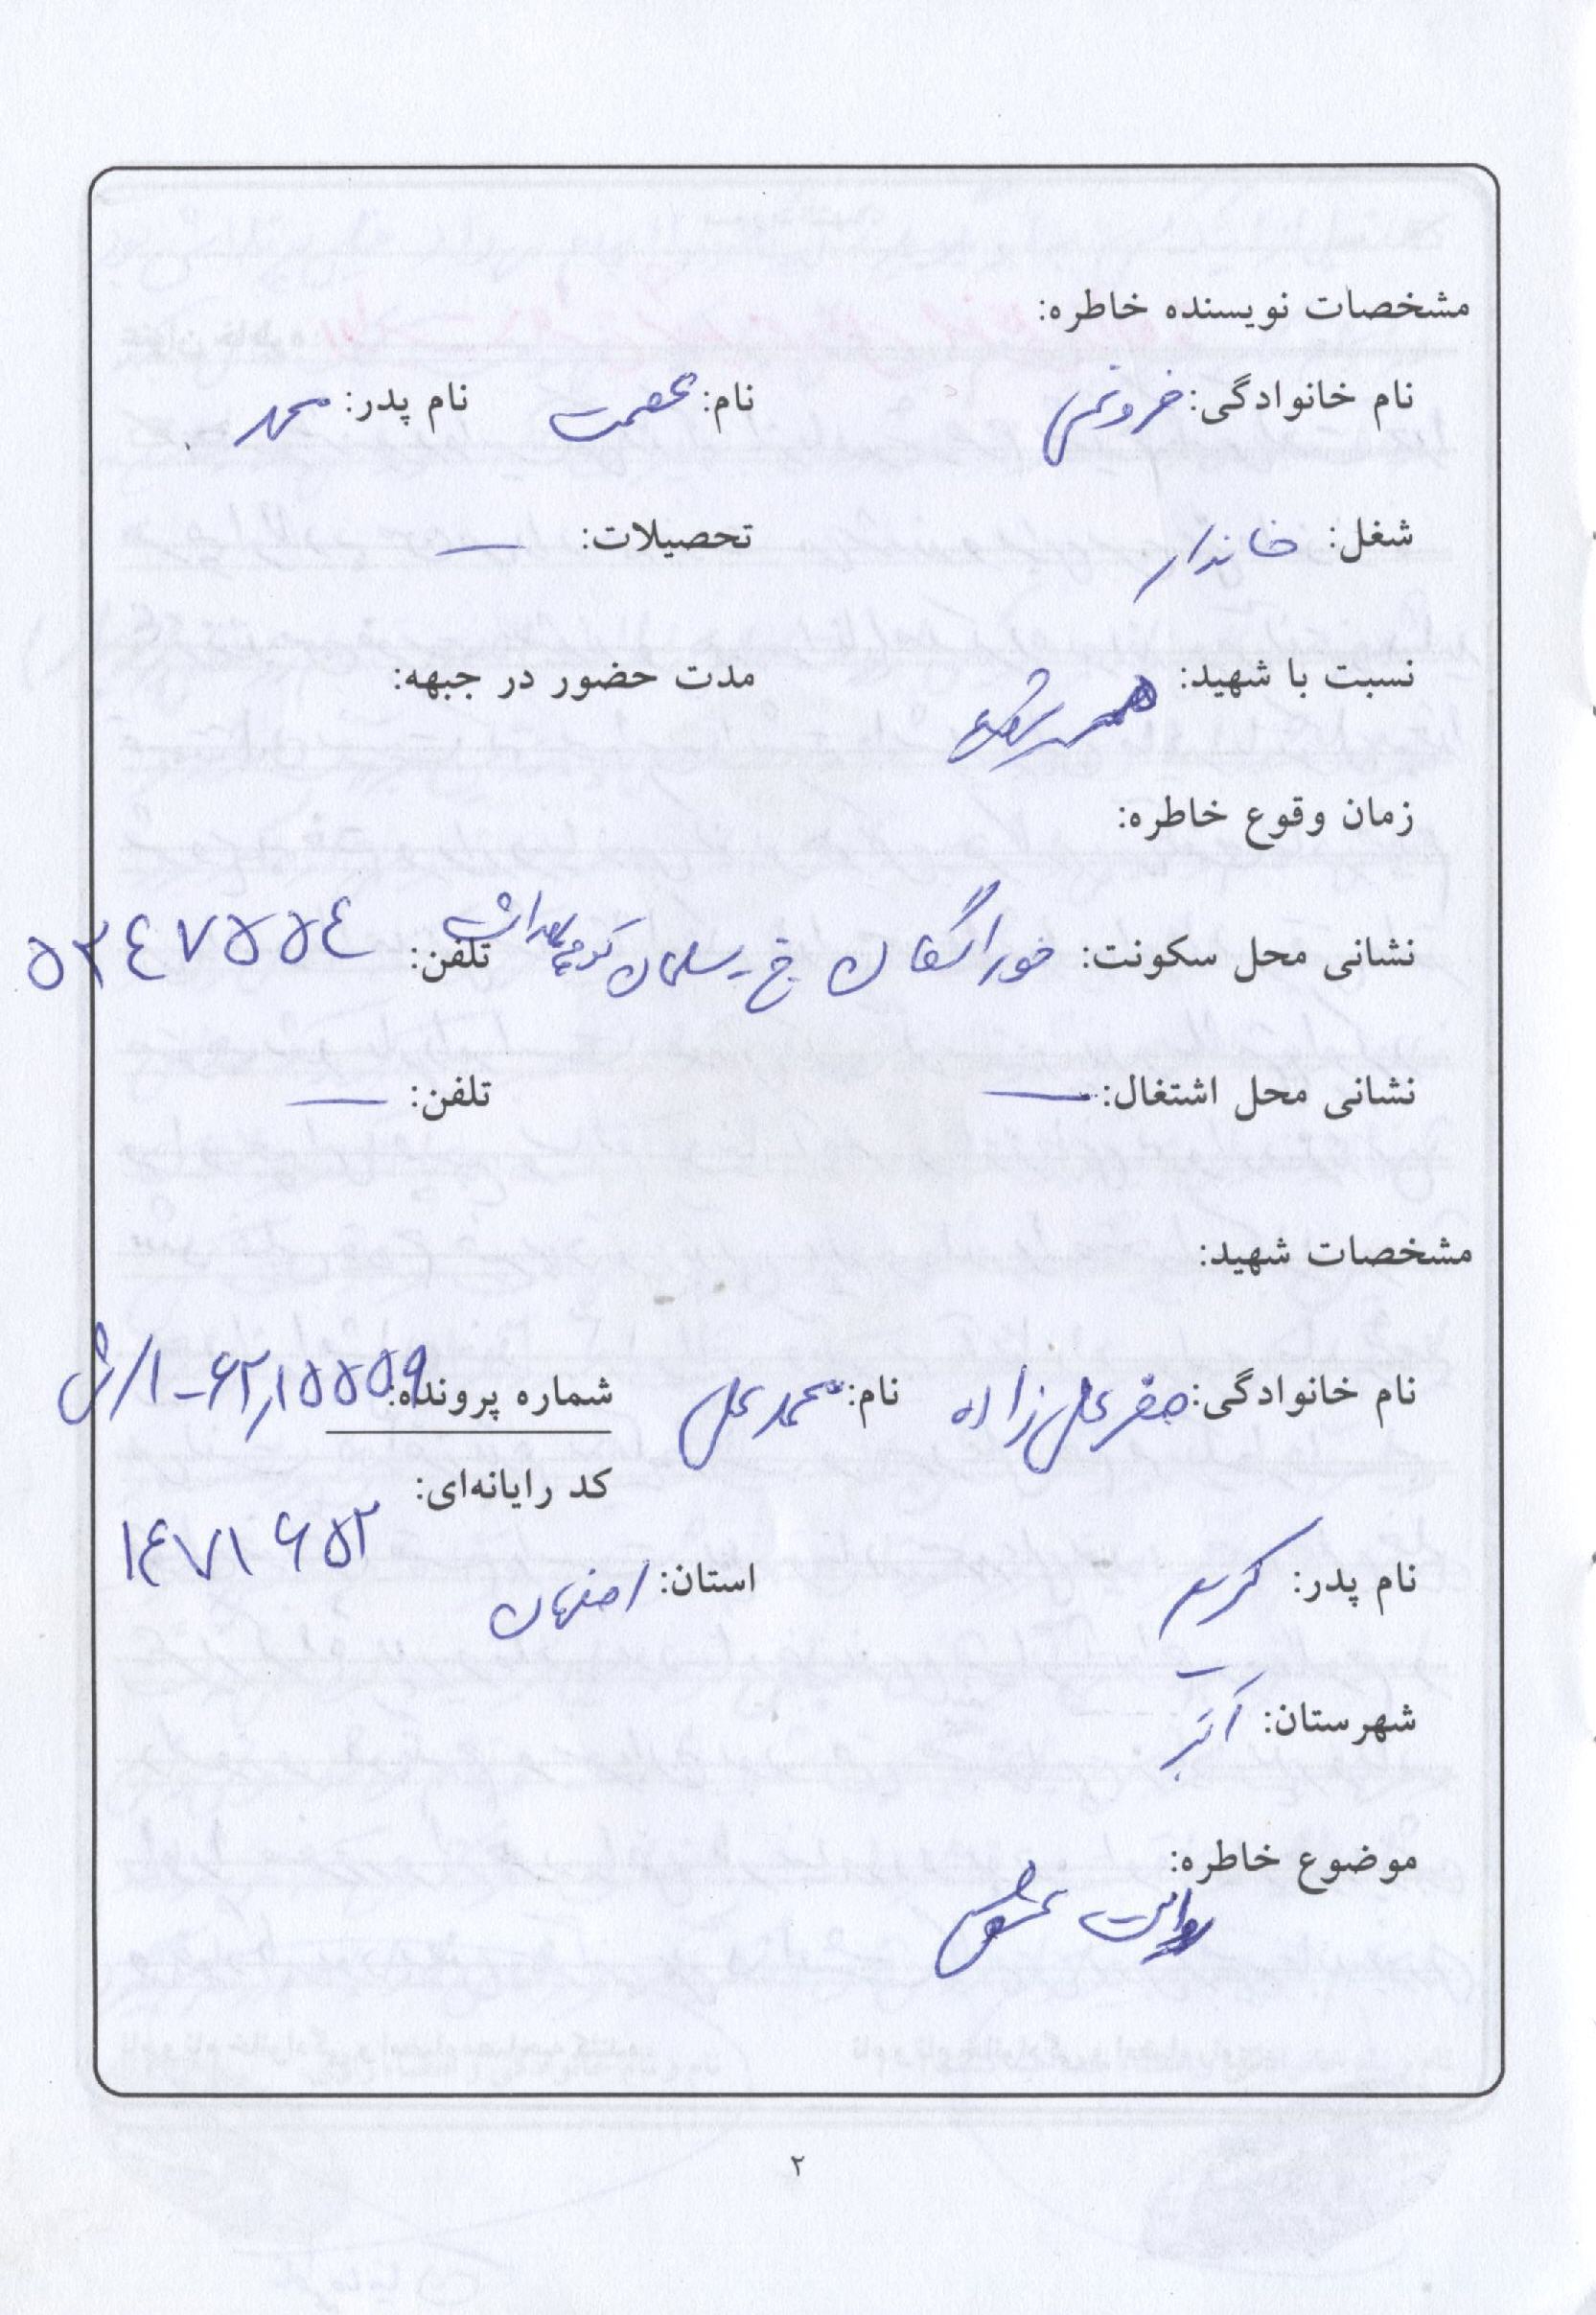 مشخصات نویسنده خاطره:
نام خانوادگی: فروغی نام: عصمت نام پدر: محمد
شغل: خاندار تحصیلات: —
نسبت با شهید: همسر شهید مدت حضور در جبهه:
زمان وقوع خاطره:
نشانی محل سکونت: خوراسگان خ سلمان کوچه تلفن: ۵۲۴۷۵۵۴
نشانی محل اشتغال: — تلفن: —
مشخصات شهید:
نام خانوادگی: صفرعلی زاده نام: محمد علی شماره پرونده: ۱/ش-۶۲٫۱۵۵۵۹
کد رایانه‌ای: ۱۴۷۱۶۵۲
نام پدر: کریم استان: اصفهان
شهرستان:
موضوع خاطره:
روایت عشق
۲